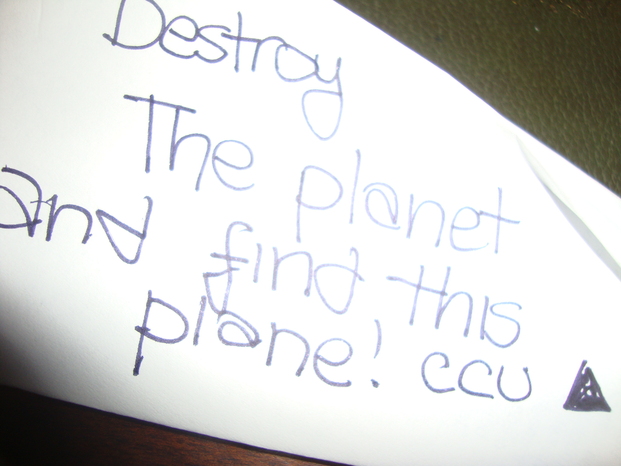 Destroy
The planet
and find this
plane! ccu